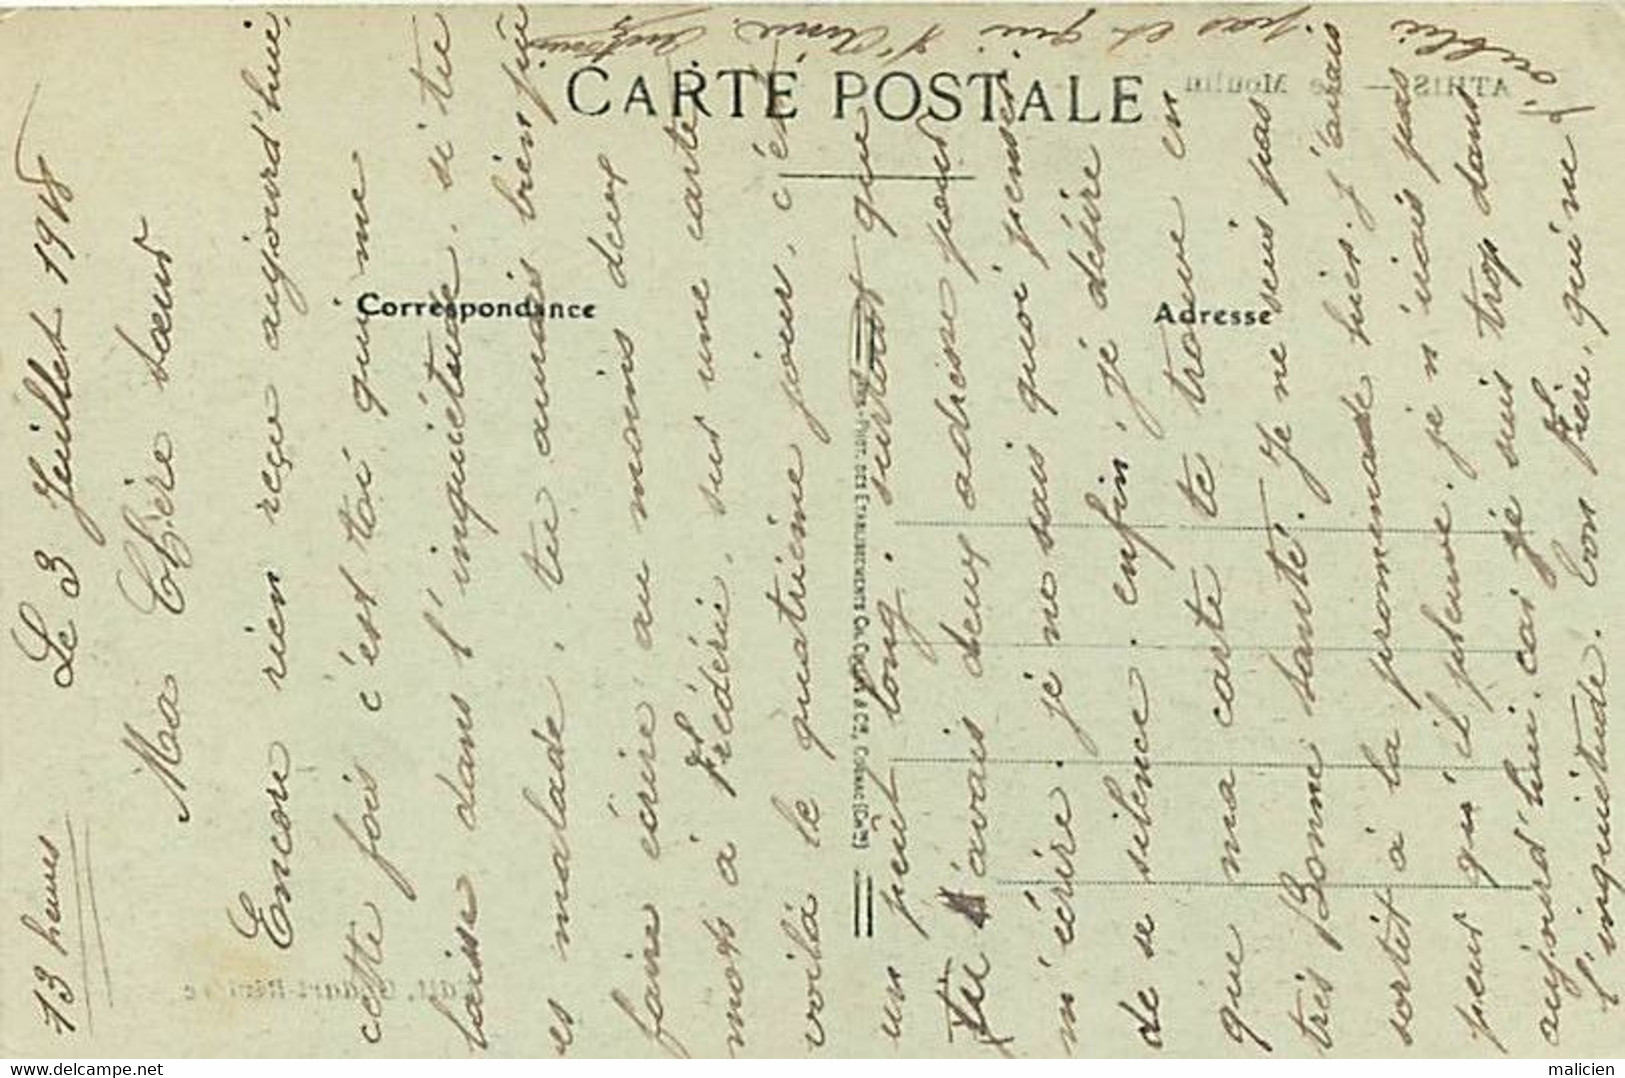 CARTE POSTALE
Correspondance
Adresse
PHOT. DES ETABLISSEMENTS
13 heures
Le 3 Juillet 1918
Ma Chère Sœur
Encore rien reçu aujourd'hui,
cette fois c'est toi qui me
laisse dans l'inquiétude, si tu
es malade, tu aurais bien pu
faire écrire, au moins deux
mots à Frédéric, sur une carte,
voilà le quatrième jour, c'est
un peut long, surtout que
Tu avais deux adresse pour
m'écrire. je ne sais quoi penser
de se silence. enfin, je désire
que ma carte te trouve en
très Bonne santé. Je ne suis pas
sortit à la promenade hier. j'aurais
peur qu'il pleuve. je n'irais pas
aujourd'hui. car je suis trop dans
l'inquiétude. Ton Frère, qui ne
t'oublie
pas et qui t'Aime
ATHIS — Le Moulin
delcampe.net
malicien